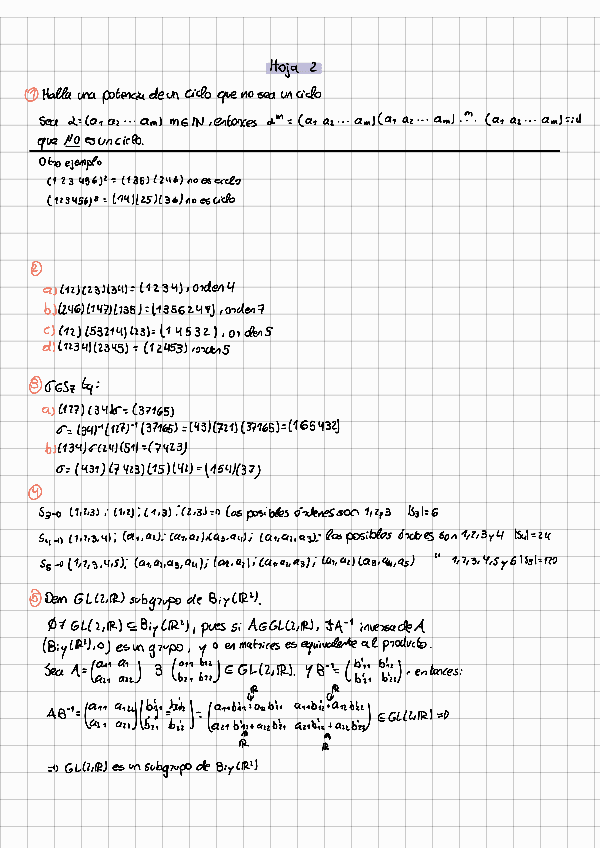 Hoja 2
① Halla una potencia de un ciclo que no sea un ciclo
Sea α=(a₁ a₂ ... aₘ) m∈ℕ, entonces αᵐ = (a₁ a₂ ... aₘ)(a₁ a₂ ... aₘ) .ᵐ. (a₁ a₂ ... aₘ)=id
que NO es un ciclo.
Otro ejemplo
(123456)² = (135)(246) no es ciclo
(123456)³ = (14)(25)(36) no es ciclo
②
a) (12)(23)(34) = (1234), orden 4
b) (246)(147)(135) = (1356247), orden 7
c) (12)(53214)(23) = (14532), orden 5
d) (1234)(2345) = (12453), orden 5
③ σ∈S₇ tq:
a) (127)(34)σ = (37165)
σ = (34)⁻¹(127)⁻¹(37165) = (43)(721)(37165) = (165432)
b) (134)σ(24)(51) = (7423)
σ = (431)(7423)(15)(42) = (154)(37)
④
S₃→ (1,2,3) ; (1,2) ; (1,3) ; (2,3) ⇒ los posibles órdenes son 1,2,3 |S₃|=6
S₄→ (1,2,3,4); (a₁,a₂); (a₁,a₂)(a₃,a₄); (a₁,a₂,a₃): los posibles órdenes son 1,2,3 y 4 |S₄|=24
S₅→ (1,2,3,4,5); (a₁,a₂,a₃,a₄); (a₁,a₂); (a₁,a₂,a₃); (a₁,a₂)(a₃,a₄,a₅) " 1,2,3,4,5 y 6 |S₅|=120
⑤ Dem GL(2,ℝ) subgrupo de Biy(ℝ²).
∅≠ GL(2,ℝ) ⊆ Biy(ℝ²), pues si A∈GL(2,ℝ), ∃A⁻¹ inversa de A
(Biy(ℝ²),∘) es un grupo, y ∘ en matrices es equivalente al producto.
Sea A = (a₁₁ a₁₂ / a₂₁ a₂₂) B (b₁₁ b₁₂ / b₂₁ b₂₂) ∈ GL(2,ℝ). Y B⁻¹ = (b'₁₁ b'₁₂ / b'₂₁ b'₂₂), entonces:
ℝ ℝ
AB⁻¹ = (a₁₁ a₁₂ / a₂₁ a₂₂)(b'₁₁ b'₁₂ / b'₂₁ b'₂₂) = (a₁₁b'₁₁+a₁₂b'₂₁ a₁₁b'₁₂+a₁₂b'₂₂ / a₂₁b'₁₁+a₂₂b'₂₁ a₂₁b'₁₂+a₂₂b'₂₂) ∈ GL(2,ℝ) ⇒
ℝ ℝ
⇒ GL(2,ℝ) es un subgrupo de Biy(ℝ²)